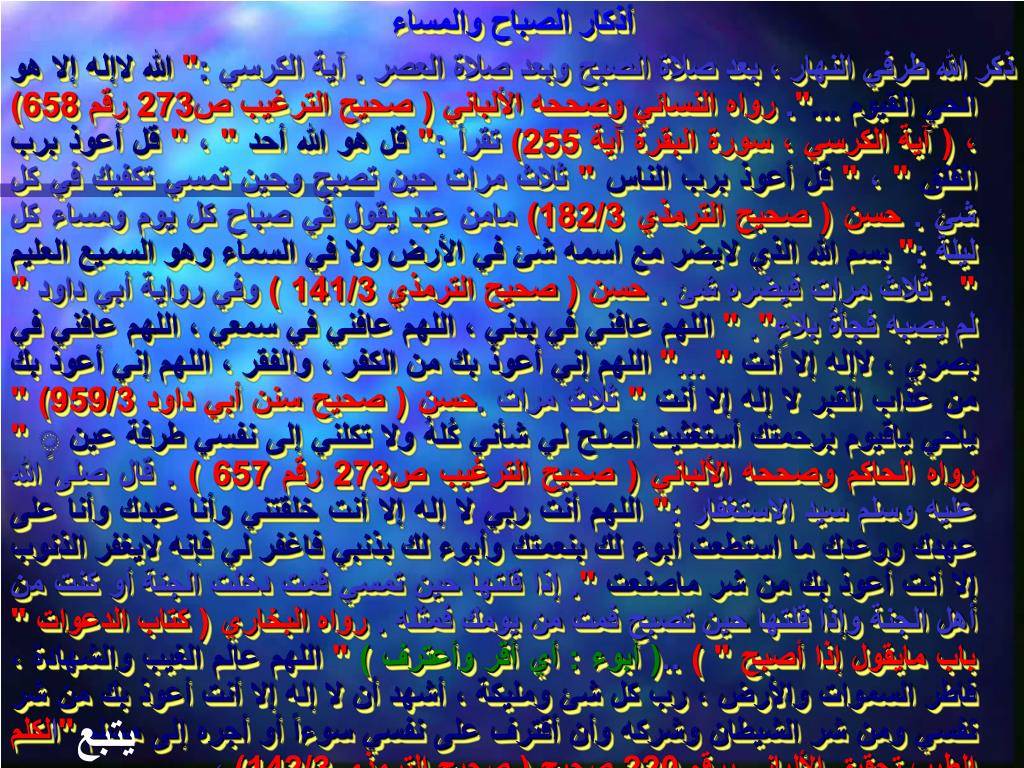 أذكار الصباح والمساء
ذكر الله طرفي النهار ، بعد صلاة الصبح وبعد صلاة العصر . آية الكرسي :" الله لاإله إلا هو
الحي القيوم ..." . رواه النسائي وصححه الألباني ( صحيح الترغيب ص273 رقم 658)
، ( آية الكرسي ، سورة البقرة آية 255) تقرأ :" قل هو الله أحد " ، " قل أعوذ برب
الفلق " ، " قل أعوذ برب الناس " ثلاث مرات حين تصبح وحين تمسي تكفيك في كل
شئ . حسن ( صحيح الترمذي 182/3) مامن عبد يقول في صباح كل يوم ومساء كل
ليلة :" بسم الله الذي لايضر مع اسمه شئ في الأرض ولا في السماء وهو السميع العليم
" . ثلاث مرات فيضره شئ . حسن ( صحيح الترمذي 141/3 ) وفي رواية أبي داود "
لم يصبه فجأة بلاءٍ" . " اللهم عافني في بدني ، اللهم عافني في سمعي ، اللهم عافني في
بصري ، لاإله إلا أنت " ..." اللهم إني أعوذ بك من الكفر ، والفقر ، اللهم إني أعوذ بك
من عذاب القبر لا إله إلا أنت " ثلاث مرات .حسن ( صحيح سنن أبي داود 959/3) "
ياحي ياقيوم برحمتك أستغثيت أصلح لي شأني كُلهُ ولا تكلني إلى نفسي طرفة عين ٍ "
رواه الحاكم وصححه الألباني ( صحيح الترغيب ص273 رقم 657 ) . قال صلى الله
عليه وسلم سيد الاستغفار :" اللهم أنت ربي لا إله إلا أنت خلقتني وأنا عبدك وأنا على
عهدك ووعدك ما استطعت أبوء لك بنعمتك وأبوء لك بذنبي فاغفر لي فإنه لايغفر الذنوب
إلا أنت أعوذ بك من شر ماصنعت ". إذا قلتها حين تمسي فمت دخلت الجنة أو كنت من
أهل الجنة وإذا قلتها حين تصبح فمت من يومك فمثله . رواه البخاري ( كتاب الدعوات "
باب مايقول إذا أصبح " ) ..( أبوء : أي أقر وأعترف ) " اللهم عالم الغيب والشهادة ،
فاطر السموات والأرض ، رب كل شئ ومليكة ، أشهد أن لا إله إلا أنت أعوذ بك من شر
نفسي ومن شر الشيطان وشركه وأن أقترف على نفسي سوءاً أو أجره إلى "الكلم
الطيب تحقيق الألباني برقم 220 صحيح ( صحيح الترمذي 142/3) ،
يتبع